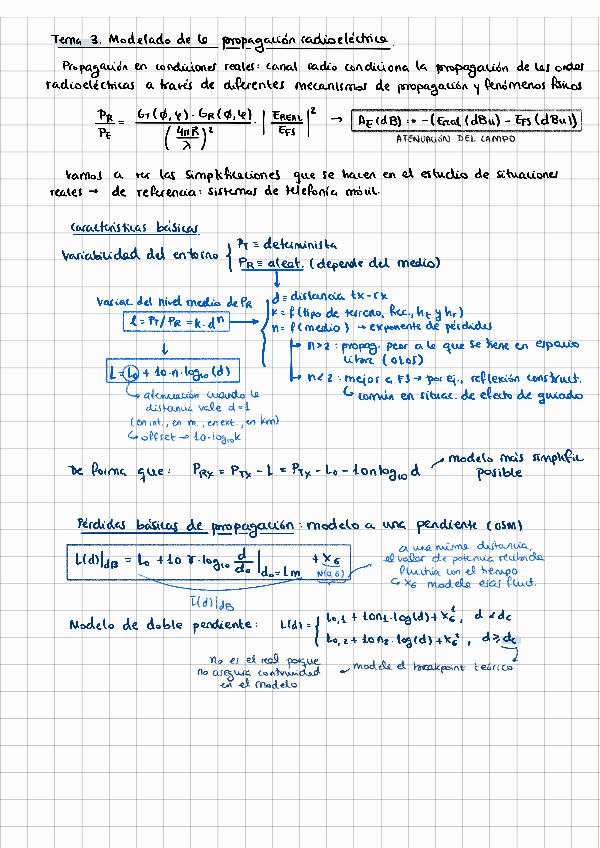 Tema 3. Modelado de la propagación radioeléctrica.
Propagación en condiciones reales: canal radio condiciona la propagación de las ondas
radioeléctricas a través de diferentes mecanismos de propagación y fenómenos físicos
P_R/P_E = G_T(ϕ,φ)·G_R(ϕ,φ)/(4πR/λ)² · |E_REAL/E_FS|² → A_E(dB) := -(E_real(dBu) - E_FS(dBu))
ATENUACIÓN DEL CAMPO
Vamos a ver las simplificaciones que se hacen en el estudio de situaciones
reales → de referencia: sistemas de telefonía móvil.
Características básicas
Variabilidad del entorno { P_T = determinista
P_R = aleat. (depende del medio)
Variac. del nivel medio de P_R
l = P_T/P_R = k·d^n →
{ d = distancia tx-rx
k = f(tipo de terreno, frec., h_t y h_r)
n = f(medio) → exponente de pérdidas
↳ n>2: propag. peor a la que se tiene en espacio
libre (OLOS)
↳ n<2: mejor a FS → por ej., reflexión construct.
↳ común en situac. de efecto de guiado
L = L_0 + 10·n·log_10(d)
↳ atenuación cuando la
distancia vale d=1
(en int., en m., en ext., en km)
↳ offset → 10·log_10 k
De forma que: P_RX = P_TX - L = P_TX - L_0 - 10n log_10 d
modelo más simplific
posible
Pérdidas básicas de propagación: modelo a una pendiente (OSM)
L(d)|_dB = L_0 + 10 γ·log_10 d/d_0 |_{d_0=1m} + X_σ
N(0,σ)
L(d)|_dB
a una misma distancia,
el valor de potencia recibida
fluctúa con el tiempo
↳ X_σ modela esas fluct.
Modelo de doble pendiente: L(d) = { L_0,1 + 10n_1·log(d) + X_σ^1, d < d_c
L_0,2 + 10n_2·log(d) + X_σ^2, d ≥ d_c
no es el real porque
no asegura continuidad
en el modelo
modela el breakpoint teórico